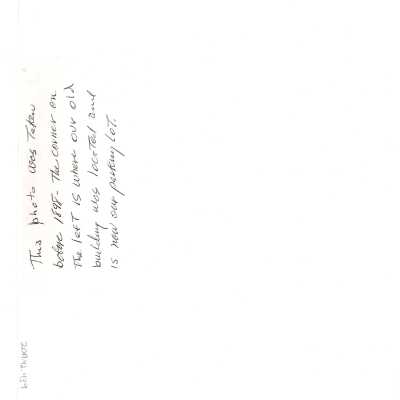 This photo was taken
before 1898. The corner on
the left is where our old
building was located and
is now our parking lot.